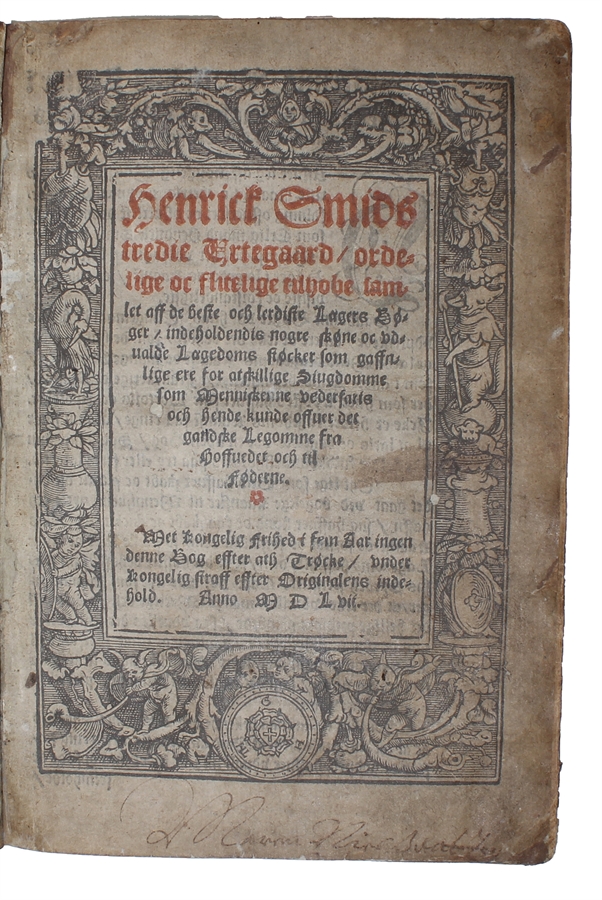 Henrick Smids
tredie Vrtegaard / orde-
lige oc flitelige tilhobe sam-
let aff de beste och lerdiste Lægers Bø-
ger / indeholdendis nogre skøne oc vd-
ualde Lægedoms støcker som gaffn-
lige ere for atskillige Siugdomme
som Menniskenne vederfaris
och hende kunde offuer det
gandske Legomme fra
Hoffuedet och til
Føderne.
Met Kongelig Frihed i fem Aar ingen
denne Bog effter ath Trøcke / vnder
Kongelig straff effter Originalens inde-
hold. Anno M D L vii.